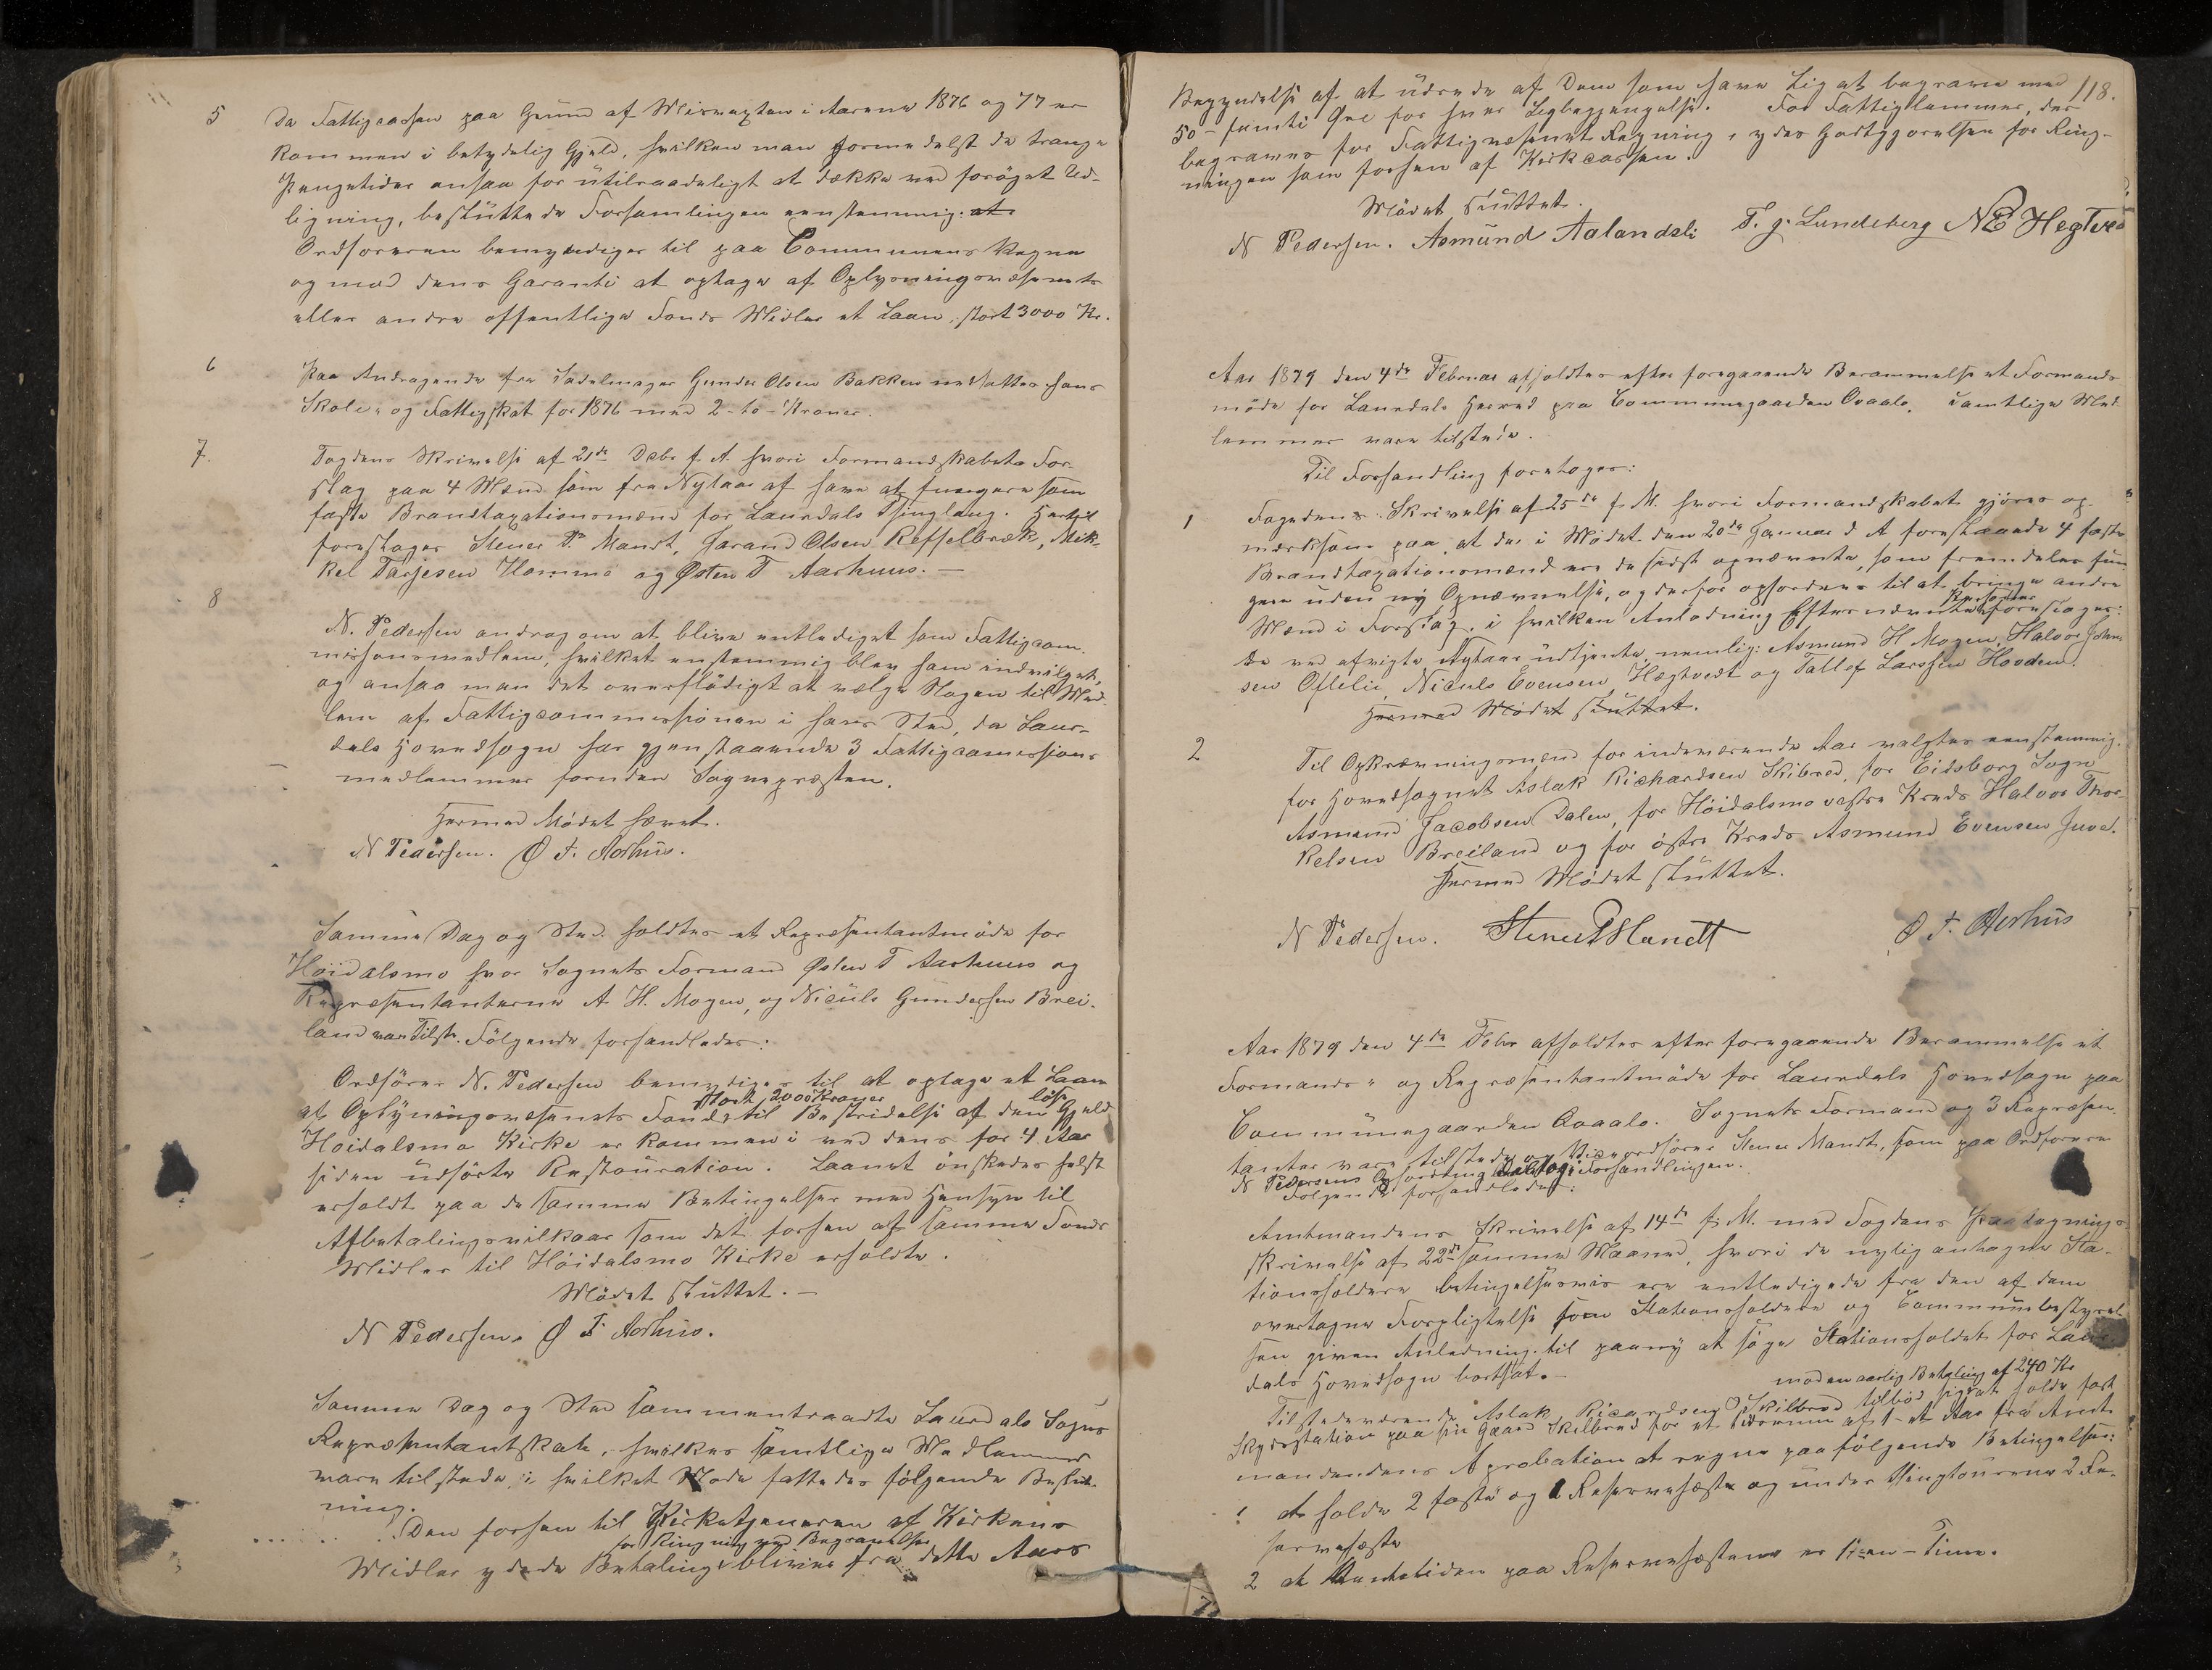 5 Da Fattigcassen paa Grund af Misvæxten i Aarene 1876 og 77 er
kommen i betydelig Gjeld, hvilken man formedelst de trange
Pengetider ansaa for utilraadeligt at dække ved forøget Ud-
ligning, besluttede Forsamlingen eenstemmig: at
Ordføreren bemyndiges til paa Communens Vegne
og mod dens Garanti at optage af Oplysningsvæsenets
eller andre offentlige Fonds Midler et Laan, stort 3000 Kr.
6 Paa Andragende fra Sadelmager Gunder Olsen Bakken nedsattes hans
Skole- og Fattigskat for 1876 med 2 - to - Kroner.
7. Fogdens Skrivelse af 21de Decbr f. A. hvori Formandskabets For-
slag paa 4 Mænd som fra Nytaar af have at fungere som
faste Brandtaxationsmænd for Laurdals Thinglaug. Hertil
foreslages Stener P. Mandt, Tarand Olsen Reffelbræk, Mik-
kel Tarjesen Homme og Østen T Aarhuus. —
8
N. Pedersen androg om at blive entlediget som Fattigcom-
missionsmedlem, hvilket enstemmig blev ham indvilget,
og ansaa man det overflødigt at vælge Nogen til Med-
lem af Fattigcommissionen i hans Sted, da Laur-
dals Hovedsogn har gjenstaaende 3 Fattigcomissions
medlemmer foruden Sognepræsten.
Hermed Mødet hævet.
N Pedersen. Ø T. Aorhus.
Samme Dag og Sted holdtes et Repræsentantmøde for
Høidalsmo hvor Sognets Formand Østen T Aarhuus og
Repræsentanterne A H. Mogen, og Niculs Gundersen Brei-
land var Tilst. Følgende forhandledes:
Ordfører N. Pedersen bemyndiges til at optage et Laan
stort 2000 Kroner løse
at Oplysningsvesenets Fond til Bestridelse af den Gjeld
Høidalsmo Kirke er kommen i ved dens for 4 Aar
siden udførte Restauration. Laanet ønskedes helst
erholdt paa de samme Betingelser med Hensyn til
Afbetalingsvilkaar som det forhen af samme Fonds
Midler til Høidalsmo Kirke erholdte.
Mødet sluttet. —
N Pedersen. Ø T. Aorhus.
Samme Dag og Sted sammentraadte Laurdals Sogns
Repræsentantskab, hvilkes samtlige Medlemmer
vare tilstede, i hvilket Møde fattedes følgende Beslut-
ning.
Den forhen til Kirketjeneren af Kirkens
for Ringning ved Begravelser
Midler ydede Betaling bliver fra dette Aars
118.
Begyndelse af at udrede af Dem som have Lig at begrave med
50 - femti Øre for hver Ligbegjængelse. For Fattiglemmer, der
begraves for Fattigvæsenets Regning, ydes Godtgjørelsen for Ring-
ningen som forhen af Kirkcassen.
Mødet sluttet.
N Pedersen. Asmund Aalandsli T. G. Lundeberg N E Hegtved
Aar 1879 den 4de Februar afholdtes efter foregaaende Berammelse et Formands-
møde for Laurdals Herred paa Communegaarden Qvaale. Samtlige Med
lemmer vare tilstede.
Til Forhandling foretoges:
1 Fogdens Skrivelse af 25de f. M. hvori Formandskabet gjøres op
mærksom paa, at der i Mødet den 20de Januar d A foreslaaede 4 faste
Brandtaxationsmænd ere de sidst opnævnte, som fremdeles fun
gere uden ny Opnævnelse, og derfor opfordres til at bringe andre
Mænd i Forslag, i hvilken Anledning Efternævnte Personer foreslages:
de ved afvigte Nytaar udtjente, nemlig: Asmund H Mogen, Halvor Johnn-
sen Oftelie, Niculs Evensen Hegtvedt og Tallef Larssen Hovden.
Hermed Mødet sluttet.
2 Til Opkrævningsmænd for indeværende Aar valgtes eenstemmig.
for Hovedsognet Aslak Richardsen Skibred, for Eidsborg Sogn
Asmund Jacobsen Dalen, for Høidalsmo vestre Kreds Halvor Thor-
kelsen Breiland og for østre Kreds Asmund Evensen Juve.
Hermed Mødet sluttet.
N Pedersen. Stener P Mandt Ø T. Aorhus
Aar 1879 den 4de Febr afholdtes efter foregaaende Berammelse et
Formands- og Repræsentantmøde for Laurdals Hovedsogn paa
Communegaarden Qvaale. Sognets Formand og 3 Repræsen-
tanter vare tilstede og Viceordfører Stener Mandt, som paa Ordfører
N Pedersens Opfordring deltog i Forhandlingen.
Følgende forhandledes:
Amtmandens Skrivelse af 14de f. M. med Fogdens Paategnings
skrivelse af 22de samme Maaned, hvori de nylig antagne Sta-
tionsholdere betingelsesvis ere entledigede fra den af dem
overtagne Forpligtelse som Stationsholdere og Communebestyrel
sen given Anledning til paany at søge Stationsholdet for Laur-
dals Hovedsogn bortsat. —
mod en aarlig Betaling af 240 Kr
Tilstedeværende Aslak Ricardsen Skilbred tilbød sig at holde fast
Skydsstation paa sin Gaard Skilbred for et Tidsrum af 1 - et Aar fra Amt-
mandendens Aprobation at regne paa følgende Betingelser:
1 At holde 2 faste og 1 Reservehæste og under Thingtourene 2 Re-
servehæste
2 at Ventetiden paa Reservehæstene er 1 - en - Time.